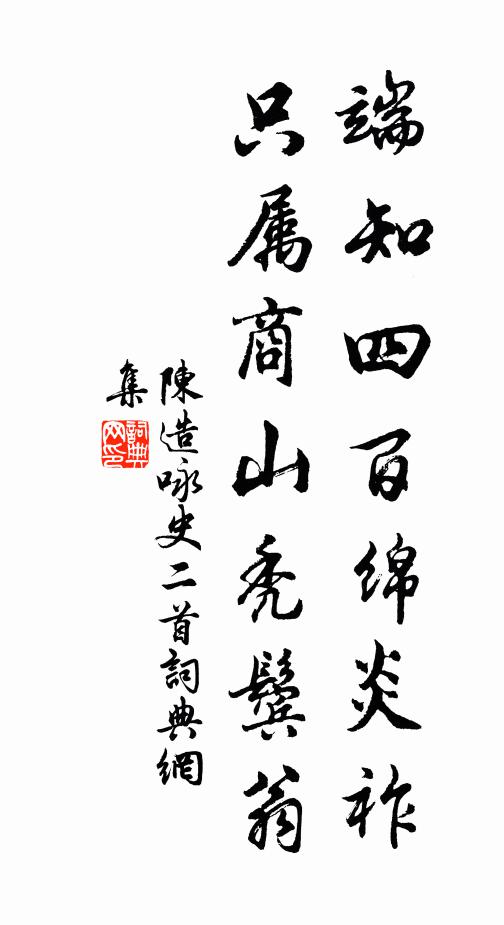 端知四百綿炎祚
只属商山秃鬓翁
陳造咏史二首詞典網
集
詞典網印